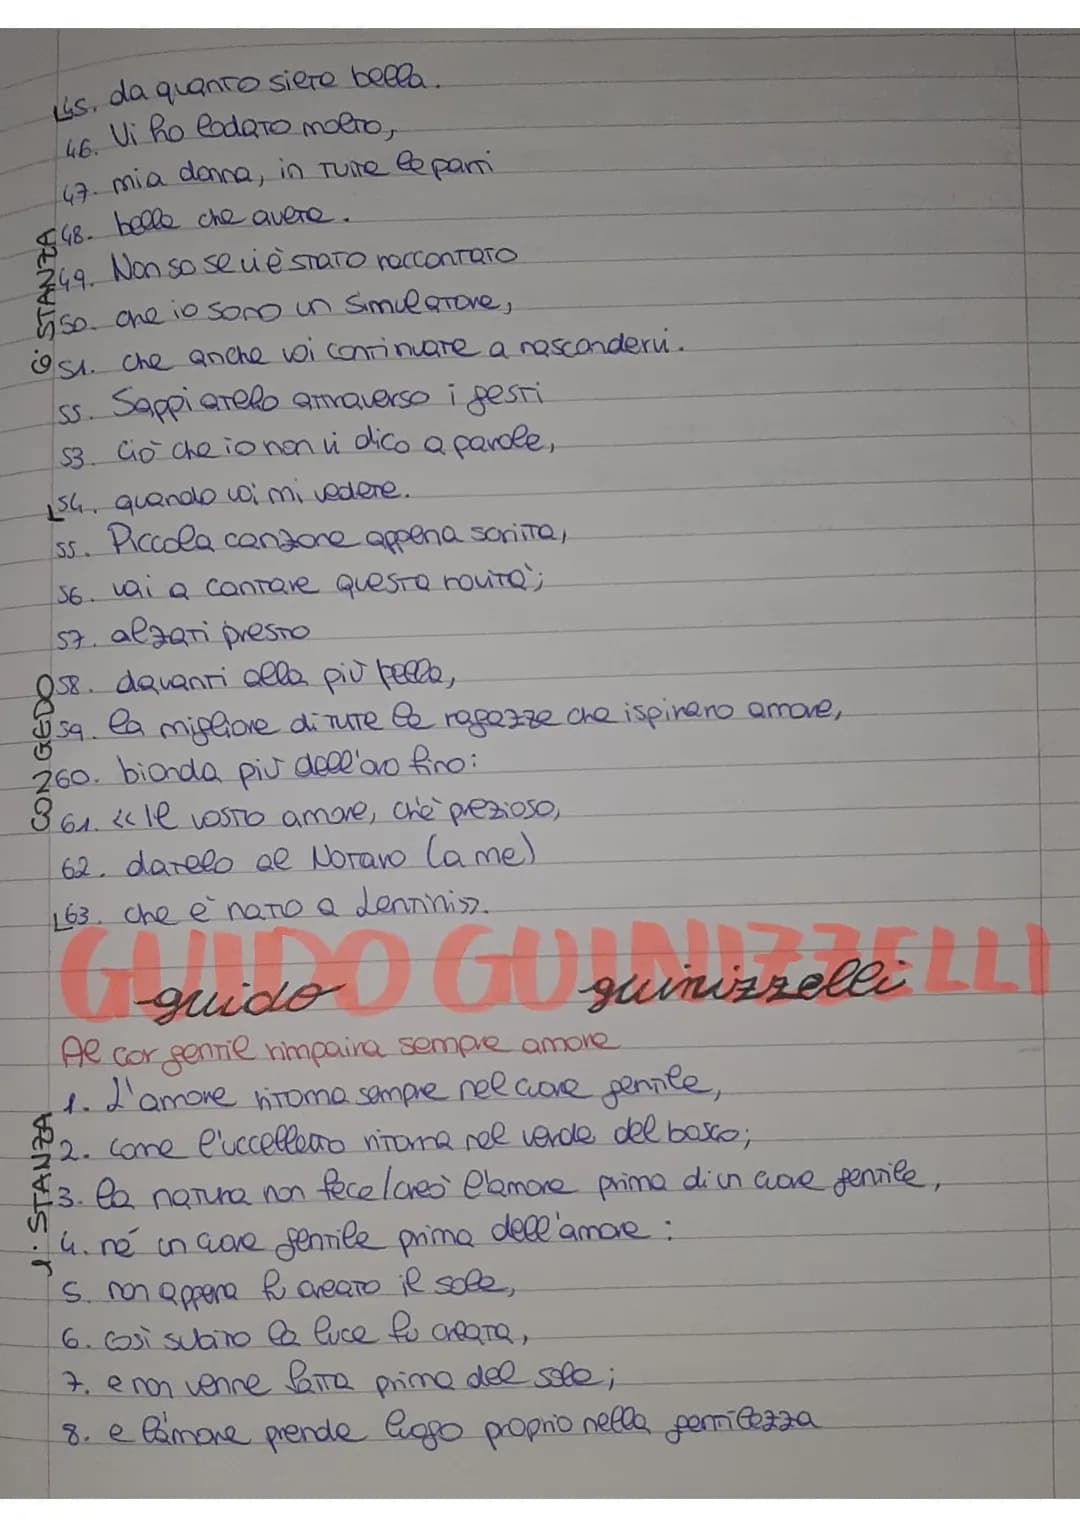 45. da quanto siete bella.
46. Vi ho lodato molto,
47. mia donna, in tutte le parti
48. belle che avete.
49. Non so se vi è stato raccontato
50. che io sono un simulatore,
51. che anche voi continuate a nascondervi.
6 STANZA
55. Sappiatelo attraverso i gesti
53. Ciò che io non vi dico a parole,
54. quando voi mi vedete.
55. Piccola canzone appena scritta,
56. vai a cantare questa novità;
57. alzati presto
58. davanti alla più bella,
59. la migliore di tutte le ragazze che ispirano amore,
60. bionda più dell'oro fino:
61. «Il vostro amore, ch'è prezioso,
62. datelo al Notaro (a me)
63. che è nato a Lentini».
CONGEDO
GUIDO GUINIZZELLI
guido guinizzelli
Al cor gentil rimpaira sempre amore
1. L'amore ritorna sempre nel cuore gentile,
2. come l'uccelletto ritorna nel verde del bosco;
3. la natura non fece/creò l'amore prima di un cuore gentile,
4. né un cuore gentile prima dell'amore:
5. non appena fu creato il sole,
6. così subito la luce fu creata,
7. e non venne fatta prima del sole;
8. e l'amore prende luogo proprio nella gentilezza
1. STANZA